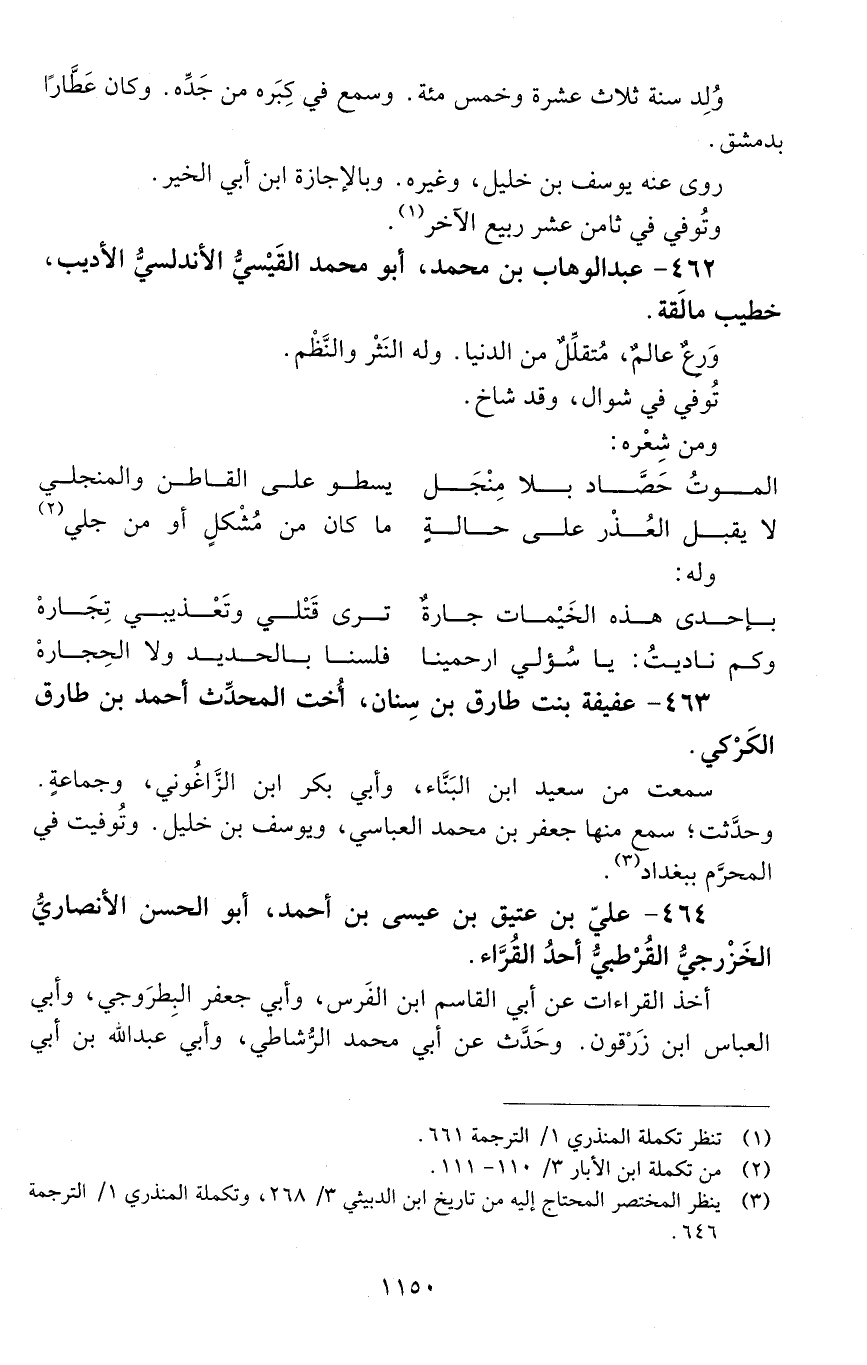 وُلِد سنة ثلاث عشرة وخمس مئة. وسمع في كِبَره من جَدِّه. وكان عَطَّارًا
بدمشق.
روى عنه يوسف بن خليل، وغيره. وبالإجازة ابن أبي الخير.
وتُوفي في ثامن عشر ربيع الآخر(١).
٤٦٢- عبدالوهاب بن محمد، أبو محمد القَيْسيُّ الأندلسيُّ الأديب،
خطيب مالَقة.
وَرِعٌ عالمٌ، مُتقلِّلٌ من الدنيا. وله النَثْر والنَّظْم.
تُوفي في شوال، وقد شاخ.
ومن شِعْره:
المـــوتُ حَصَّـــاد بـــلا مِنْجَـــل يسطـو علـى القـاطـن والمنجلـي
لا يقبـــل العُـــذْر علـــى حـــالـــةٍ ما كان من مُشْكلٍ أو من جلي(٢)
وله:
بـإحـدى هـذه الخَيْمـات جـارةٌ تـرى قَتْلـي وتَعْـذيبـي تِجَـارهْ
وكـم نـاديـتُ: يـا سُـؤلـي ارحمينـا فلسنـا بـالحـديـد ولا الحِجـارهْ
٤٦٣- عفيفة بنت طارق بن سِنان، أُخت المحدِّث أحمد بن طارق
الكَرْكي.
سمعت من سعيد ابن البَنَّاء، وأبي بكر ابن الزَّاغُوني، وجماعةٍ.
وحدَّثت؛ سمع منها جعفر بن محمد العباسي، ويوسف بن خليل. وتُوفيت في
المحرَّم ببغداد(٣).
٤٦٤- عليّ بن عتيق بن عيسى بن أحمد، أبو الحسن الأنصاريُّ
الخَزْرجيُّ القُرْطبيُّ أحدُ القُرَّاء.
أخذ القراءات عن أبي القاسم ابن الفَرس، وأبي جعفر البِطرَوجي، وأبي
العباس ابن زَرْقون. وحَدَّث عن أبي محمد الرُّشاطي، وأبي عبدالله بن أبي
(١) تنظر تكملة المنذري ١/ الترجمة ٦٦١.
(٢) من تكملة ابن الأبار ٣/ ١١٠- ١١١.
(٣) ينظر المختصر المحتاج إليه من تاريخ ابن الدبيثي ٣/ ٢٦٨، وتكملة المنذري ١/ الترجمة
٦٤٦.
١١٥٠